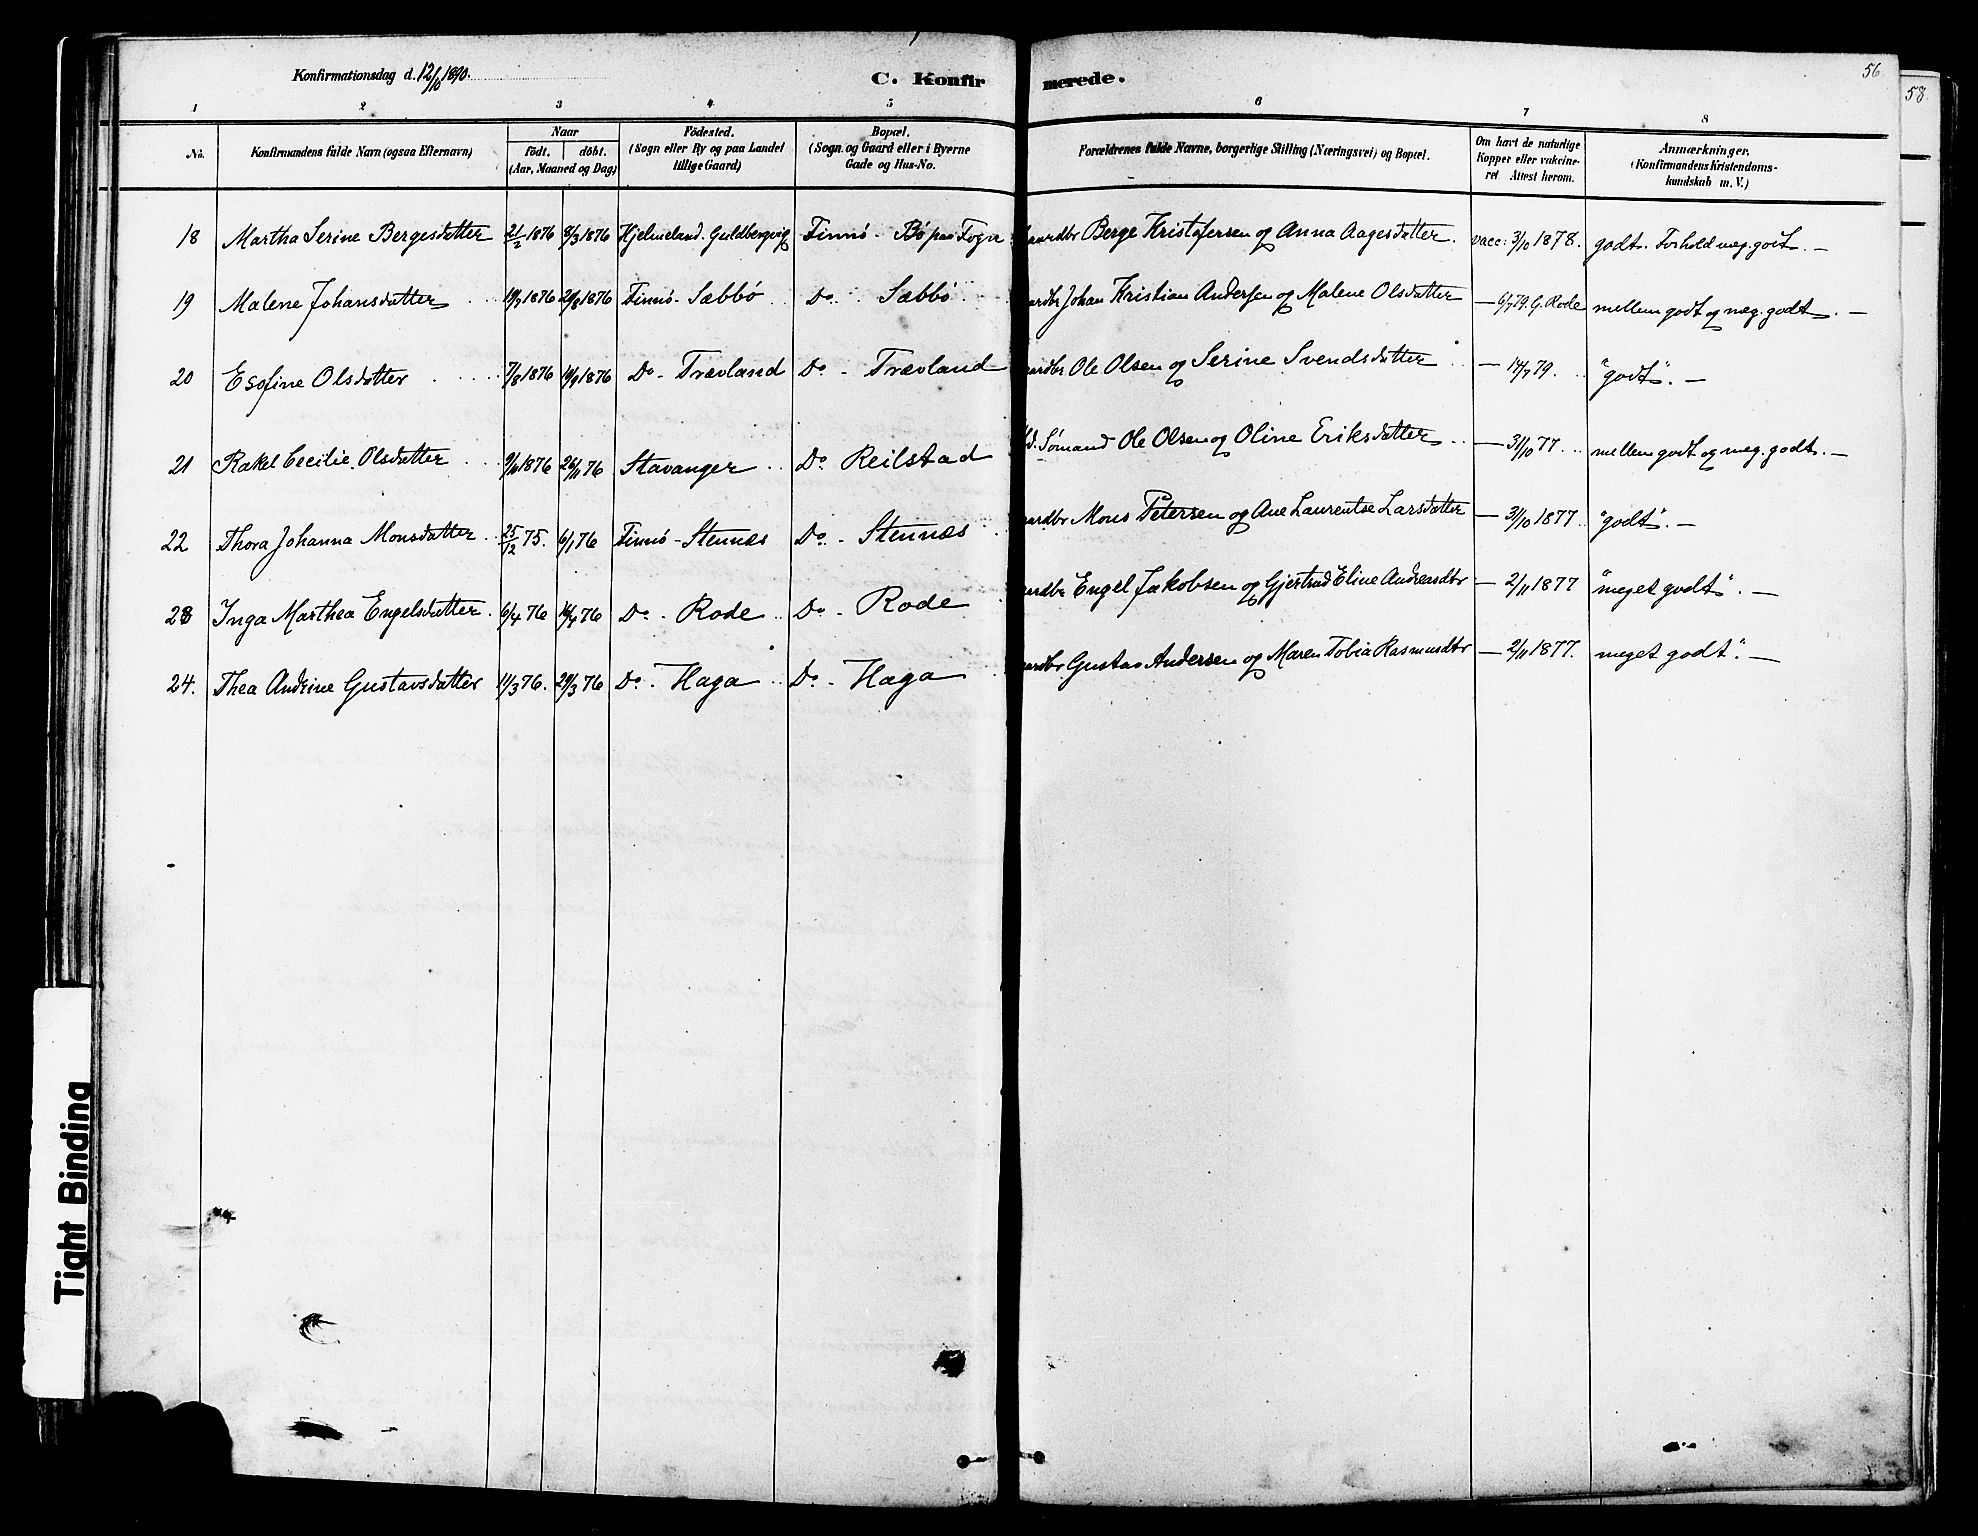 Konfirmationsdag d. 12/10 1890.
C. Konfirmerede.
56
58
1 2 3 4 5 6 7 8
No.
Konfirmandens fulde Navn (ogsaa Efternavn)
Naar
födt. döbt.
(Aar, Maaned og Dag)
Födested.
(Sogn eller By og paa Landet
tillige Gaard)
Bopæl.
(Sogn og Gaard eller i Byerne
Gade og Hus-No.
Forældrenes fulde Navne, borgerlige Stilling (Næringsvei) og Bopæl.
Om havt de naturlige
Kopper eller vakcine-
ret Attest herom.
Anmærkninger.
(Konfirmandens Kristendoms-
kundskab m. V.)
18 Martha Serine Bergesdatter 21/2 1876 8/3 1876 Hjelmeland. Guldbergvig Finnö - Bö paa Fogn aardbr Berge Kristofersen og Anna Aagesdatter. vacc: 3/10 1878. godt. Forhold meg. godt. —
19 Malene Johansdatter 1876 20/8 1876 Finnö - Sæbbö Do. Sæbbö ardbr Johan Kristian Andersen og Malene Olsdatter — 6/7 79. G. Rode mellem godt og meg. godt. —
20 Esofine Olsdatter 7/8 1876 1876 Do - Trævland Do - Trævland ardbr Ole Olsen og Serine Svendsdatter — 14/7 79. "godt". —
21 Rakel Cecilie Olsdatter 1876 26/11 76 Stavanger Do. Reilstad d. Sömand Ole Olsen og Oline Eriksdatter — 31/10 77. mellem godt og meg. godt. —
22 Thora Johanna Monsdatter 25/12 75. 6/1 76 Finnö - Stennæs Do. - Stennæs aardbr Mons Petersen og Ane Laurentse Larsdatter — 31/10 1877 "godt". —
23 Inga Marthea Engelsdatter 6/4 76 76 Do - Rode Do - Rode ardbr Engel Jakobsen og Gjertrud Eline Andreasdtr — 2/11 1877 "meget godt". —
24. Thea Andrine Gustavsdatter 11/3 76. 29/3 76 Do - Haga Do - Haga ardbr Gustav Andersen og Maren Tobia Rasmusdtr — 2/11 1877. meget godt". —
Tight Binding